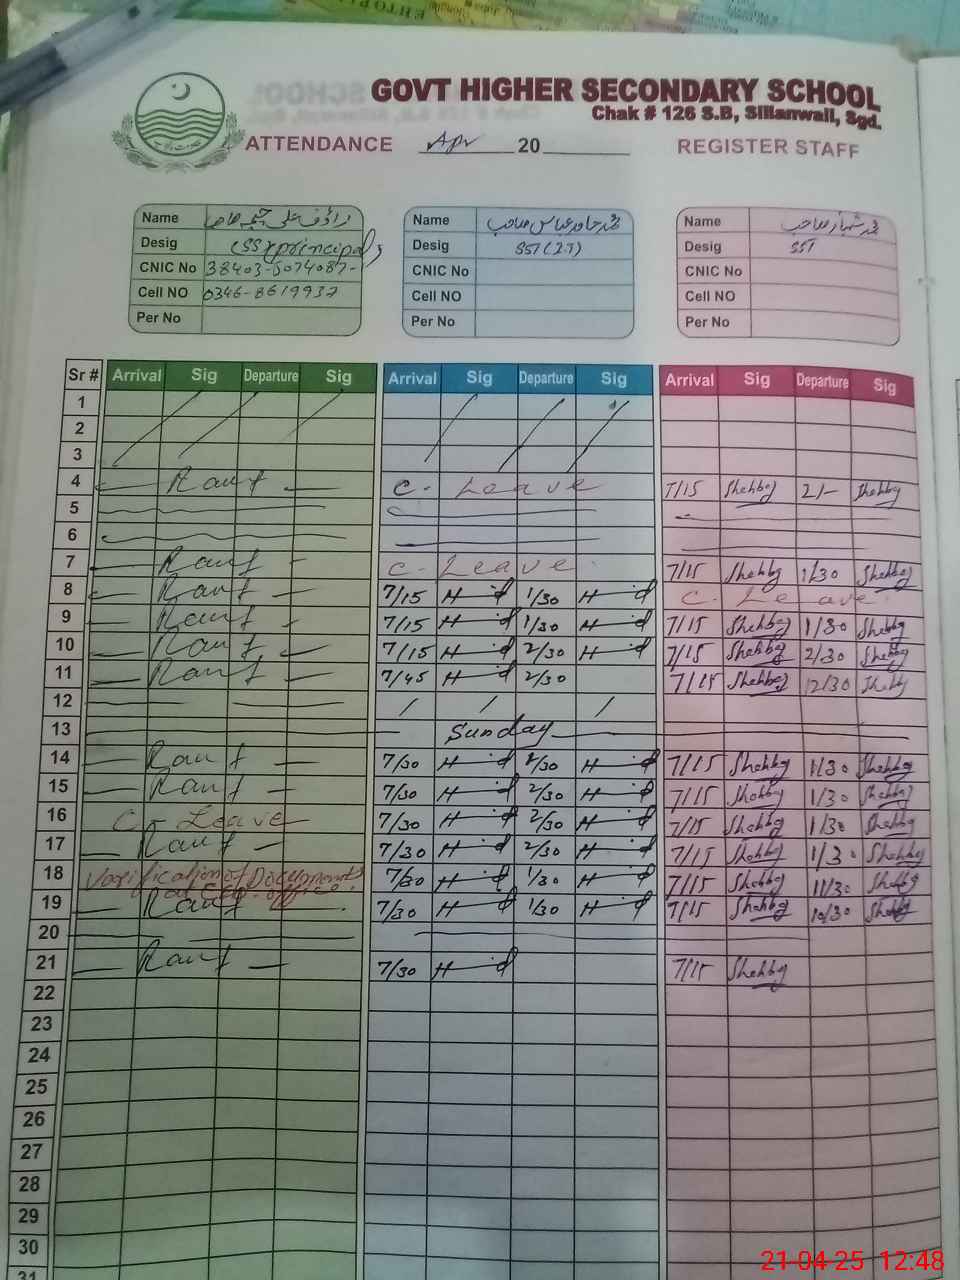 GOVT HIGHER SECONDARY SCHOOL
Chak # 126 S.B, Sillanwali, Sgd.
ATTENDANCE Apr 20 REGISTER STAFF
Name
Desig (SS) principal
CNIC No
Cell NO 0346-8619937
Per No
Name
Desig SST (I.T)
CNIC No
Cell NO
Per No
Name
Desig SST
CNIC No
Cell NO
Per No
Sr # Arrival Sig Departure Sig Arrival Sig Departure Sig Arrival Sig Departure Sig
1
2
3
4 Rauf C. Leave 7/15 Shehbaz 2/- Shehbaz
5
6
7 Rauf C. Leave 7/15 Shehbaz 1/30 Shehbaz
8 Rauf 7/15 1/30 C. Leave
9 Rauf 7/15 1/30 7/15 Shehbaz 1/30 Shehbaz
10 Rauf 7/15 2/30 7/15 Shehbaz 2/30 Shehbaz
11 Rauf 7/45 2/30 7/15 Shehbaz 12/30 Shehbaz
12
13 Sunday
14 Rauf 7/30 7/15 Shehbaz 1/30 Shehbaz
15 Rauf 7/30 2/30 7/15 Shehbaz 1/30 Shehbaz
16 C- Leave 7/30 2/30 7/15 Shehbaz 1/30 Shehbaz
17 Rauf 7/30 2/30 7/15 Shehbaz 1/30 Shehbaz
18 Varification of Documents 7/30 1/30 7/15 Shehbaz 11/30 Shehbaz
at CEO office.
19 Rauf 7/30 1/30 7/15 Shehbaz 10/30 Shehbaz
20
21 Rauf 7/30 7/15 Shehbaz
22
23
24
25
26
27
28
29
30
31
21-04-25 12:48